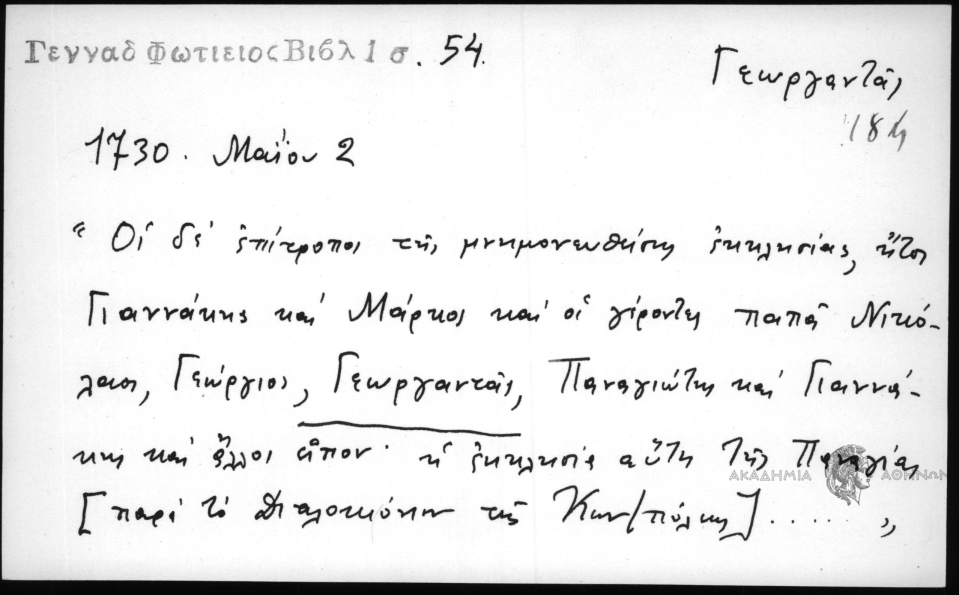 Γενναδ Φωτιειος Βιβλ 1 σ. 54.
Γεωργαντᾶς
184
1730. Μαΐου 2
"Οἱ δὲ ἐπίτροποι τῆς μνημονευθείσης ἐκκλησίας, ἤτοι
Γιαννάκης καὶ Μάρκος καὶ οἱ γέροντες παπᾶ Νικό-
λαος, Γεώργιος, Γεωργαντᾶς, Παναγιώτης καὶ Γιαννά-
κης καὶ ἄλλοι εἶπον· ἡ ἐκκλησία αὕτη τῆς Παναγίας
[παρὰ τὸ τῆς Κων/πόλεως] ..... "
ΑΚΑΔΗΜΙΑ ΑΘΗΝΩΝ